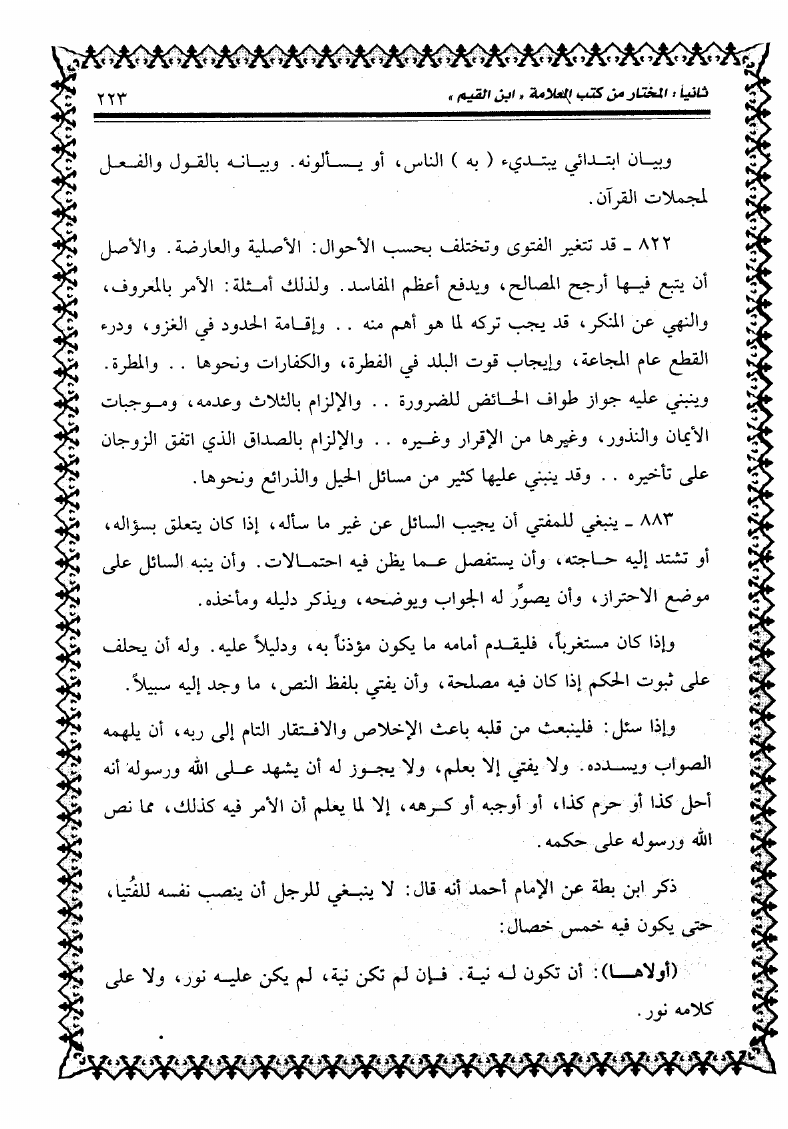 ثانياً: المختار من كتب العلامة « ابن القيم »
٢٢٣
وبيـان ابتـدائي يبتـديء ( به ) الناس، أو يـسـألونه. وبيـانـه بالقـول والفـعـل
لمجملات القرآن.
٨٢٢ ـ قد تتغير الفتوى وتختلف بحسب الأحوال: الأصلية والعارضة. والأصل
أن يتبع فيـهـا أرجح المصالح، ويدفع أعظم المفاسد. ولذلك أمـثلة: الأمر بالمعروف،
والنهي عن المنكر، قد يجب تركه لما هو أهم منه .. وإقـامة الحدود في الغزو، ودرء
القطع عام المجاعة، وإيجاب قوت البلد في الفطرة، والكفارات ونحوها .. والمطرة.
وينبني عليه جواز طواف الحـائض للضرورة .. والإلزام بالثلاث وعدمه، ومـوجبات
الأيمان والنذور، وغيرها من الإقرار وغـيره .. والإلزام بالصداق الذي اتفق الزوجان
على تأخيره .. وقد ينبني عليها كثير من مسائل الحيل والذرائع ونحوها.
٨٨٣ ـ ينبغي للمفتي أن يجيب السائل عن غير ما سأله، إذا كان يتعلق بسؤاله،
أو تشتد إليه حـاجته، وأن يستفصل عـما يظن فيه احتمـالات. وأن ينبه السائل على
موضع الاحتراز، وأن يصوِّر له الجواب ويوضحه، ويذكر دليله ومأخذه.
وإذا كان مستغرباً، فليقـدم أمامه ما يكون مؤذناً به، ودليلاً عليه. وله أن يحلف
على ثبوت الحكم إذا كان فيه مصلحة، وأن يفتي بلفظ النص، ما وجد إليه سبيلاً.
وإذا سئل: فلينبعث من قلبه باعث الإخلاص والافـتقار التام إلى ربه، أن يلهمه
الصواب ويسـدده. ولا يفتي إلا بعلم، ولا يجـوز له أن يشهد عـلى الله ورسوله أنه
أحل كذا أو حرم كذا، أو أوجبه أو كـرهه، إلا لما يعلم أن الأمر فيه كذلك، مما نص
الله ورسوله على حكمه.
ذكر ابن بطة عن الإمام أحمد أنه قال: لا ينبـغي للرجل أن ينصب نفسه للفُتيا،
حتى يكون فيه خمس خصال:
(أولاهـا): أن تكون لـه نيـة. فـإن لم تكن نية، لم يكن عليـه نور، ولا على
كلامه نور.